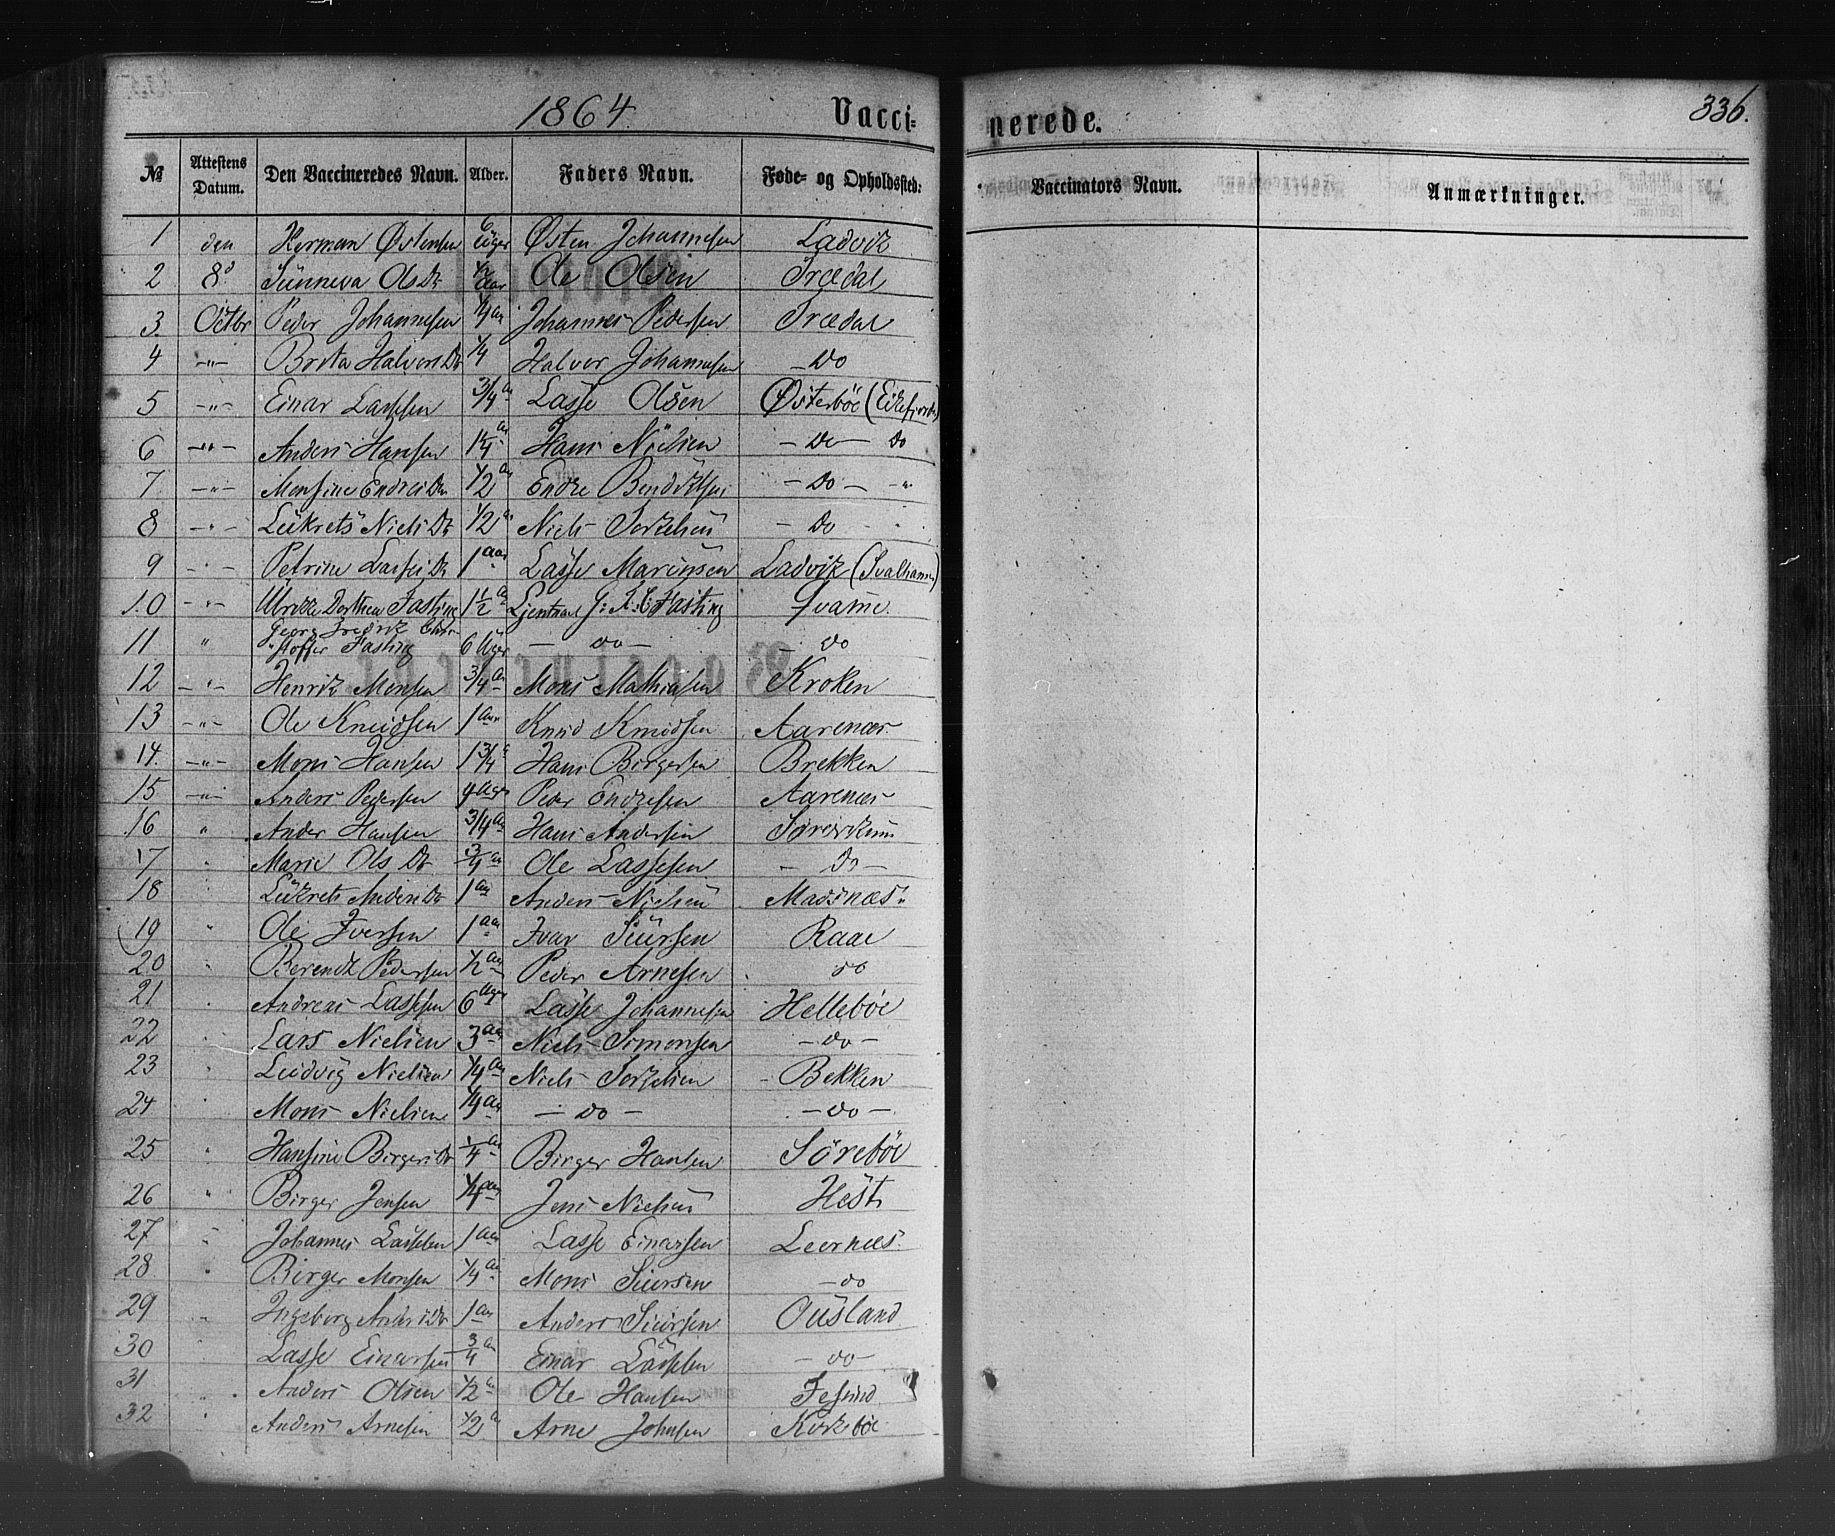 1864.
Vacci=
nerede.
336.
№ Attestens Datum. Den Vaccineredes Navn. Alder. Faders Navn. Føde- og Opholdssted: Vaccinators Navn. Anmærkninger.
1 den Herman Østensen 6 Uger Østen Johannesen Ladvik
2 8d Sünneva Ols Dr ½ Aar Ole Olsen Trædal
3 Octbr Peder Johannesen ¼ Aar Johannes Pedersen Trædal
4 -"- Brita Halvors Dr ¼ Halvor Johannesen - Do
5 -"- Einar Lassesen ¾ a Lasse Olsen Østerbøe (Eikefjorden)
6 -"- Anders Hansen 1¼ a Hans Nielsen - Do - Do
7 -"- Monsine Endres Dr ½ a Endre Bendiktsen - Do - "
8 -"- Lükrets Niels Dr ½ a Niels Torkelsen - Do "
9 -"- Petrine Lasses Dr 1 aar Lasse Mareusen Ladvik (Svalhammer)
10 -"- Ulrikke Dorthea Fasting 1½ a G: F: C: Fasting Qvame
11 " Georg Fredrik Chri-
stoffer Fasting 6 Uger - Do - - Do
12 -"- Henrik Monsen ¾ a Mons Mathiasen Kroken
13 -"- Ole Knudsen 1 aar Knud Knudsen Aarenær
14. -"- Mons Hansen 1¾ a Hans Birgersen Brekken
15 -"- Anders Pedersen 4 Uger Peder Endresen Aarenæs
16 " Anders Hansen ¾ a Hans Andersen
17 " Marie Ols Dr ¾ a Ole Lassesen - Do -
18 " Lükrets Anders Dr 1 a Anders Nielsen Madsnæs
19 " Ole Iversen 1 aar Ivar Siursen Raae
20 " Berendt Pedersen ½ a Peder Arnesen do
21 " Andreas Lassesen 6 Uger Lasse Johannesen Hellebøe
22 " Lars Nielsen 3 aar Niels Simonsen - do -
23 " Ludvig Nielsen ¼ a Niels Torkelsen - Bekken
24 " Mons Nielsen ¼ a - do - - do -
25 " Hansine Birgers Dr ¼ a Birger Hansen Sørebøe
26 " Birger Jensen ¼ a Jens Nielsen Hest
27 " Johannes Lassesen 1 aar Lasse Einarsen Leernæs
28 " Birger Monsen ¼ a Mons Siursen - do
29 " Ingeborg Anders Dr 1 a Anders Siursen Ousland
30 " Lasse Einarsen ¾ a Einar Lassesen - do -
31 " Anders Olsen ½ a Ole Hansen
32 " Anders Arnesen ½ a Arne Johnsen Kirkebøe